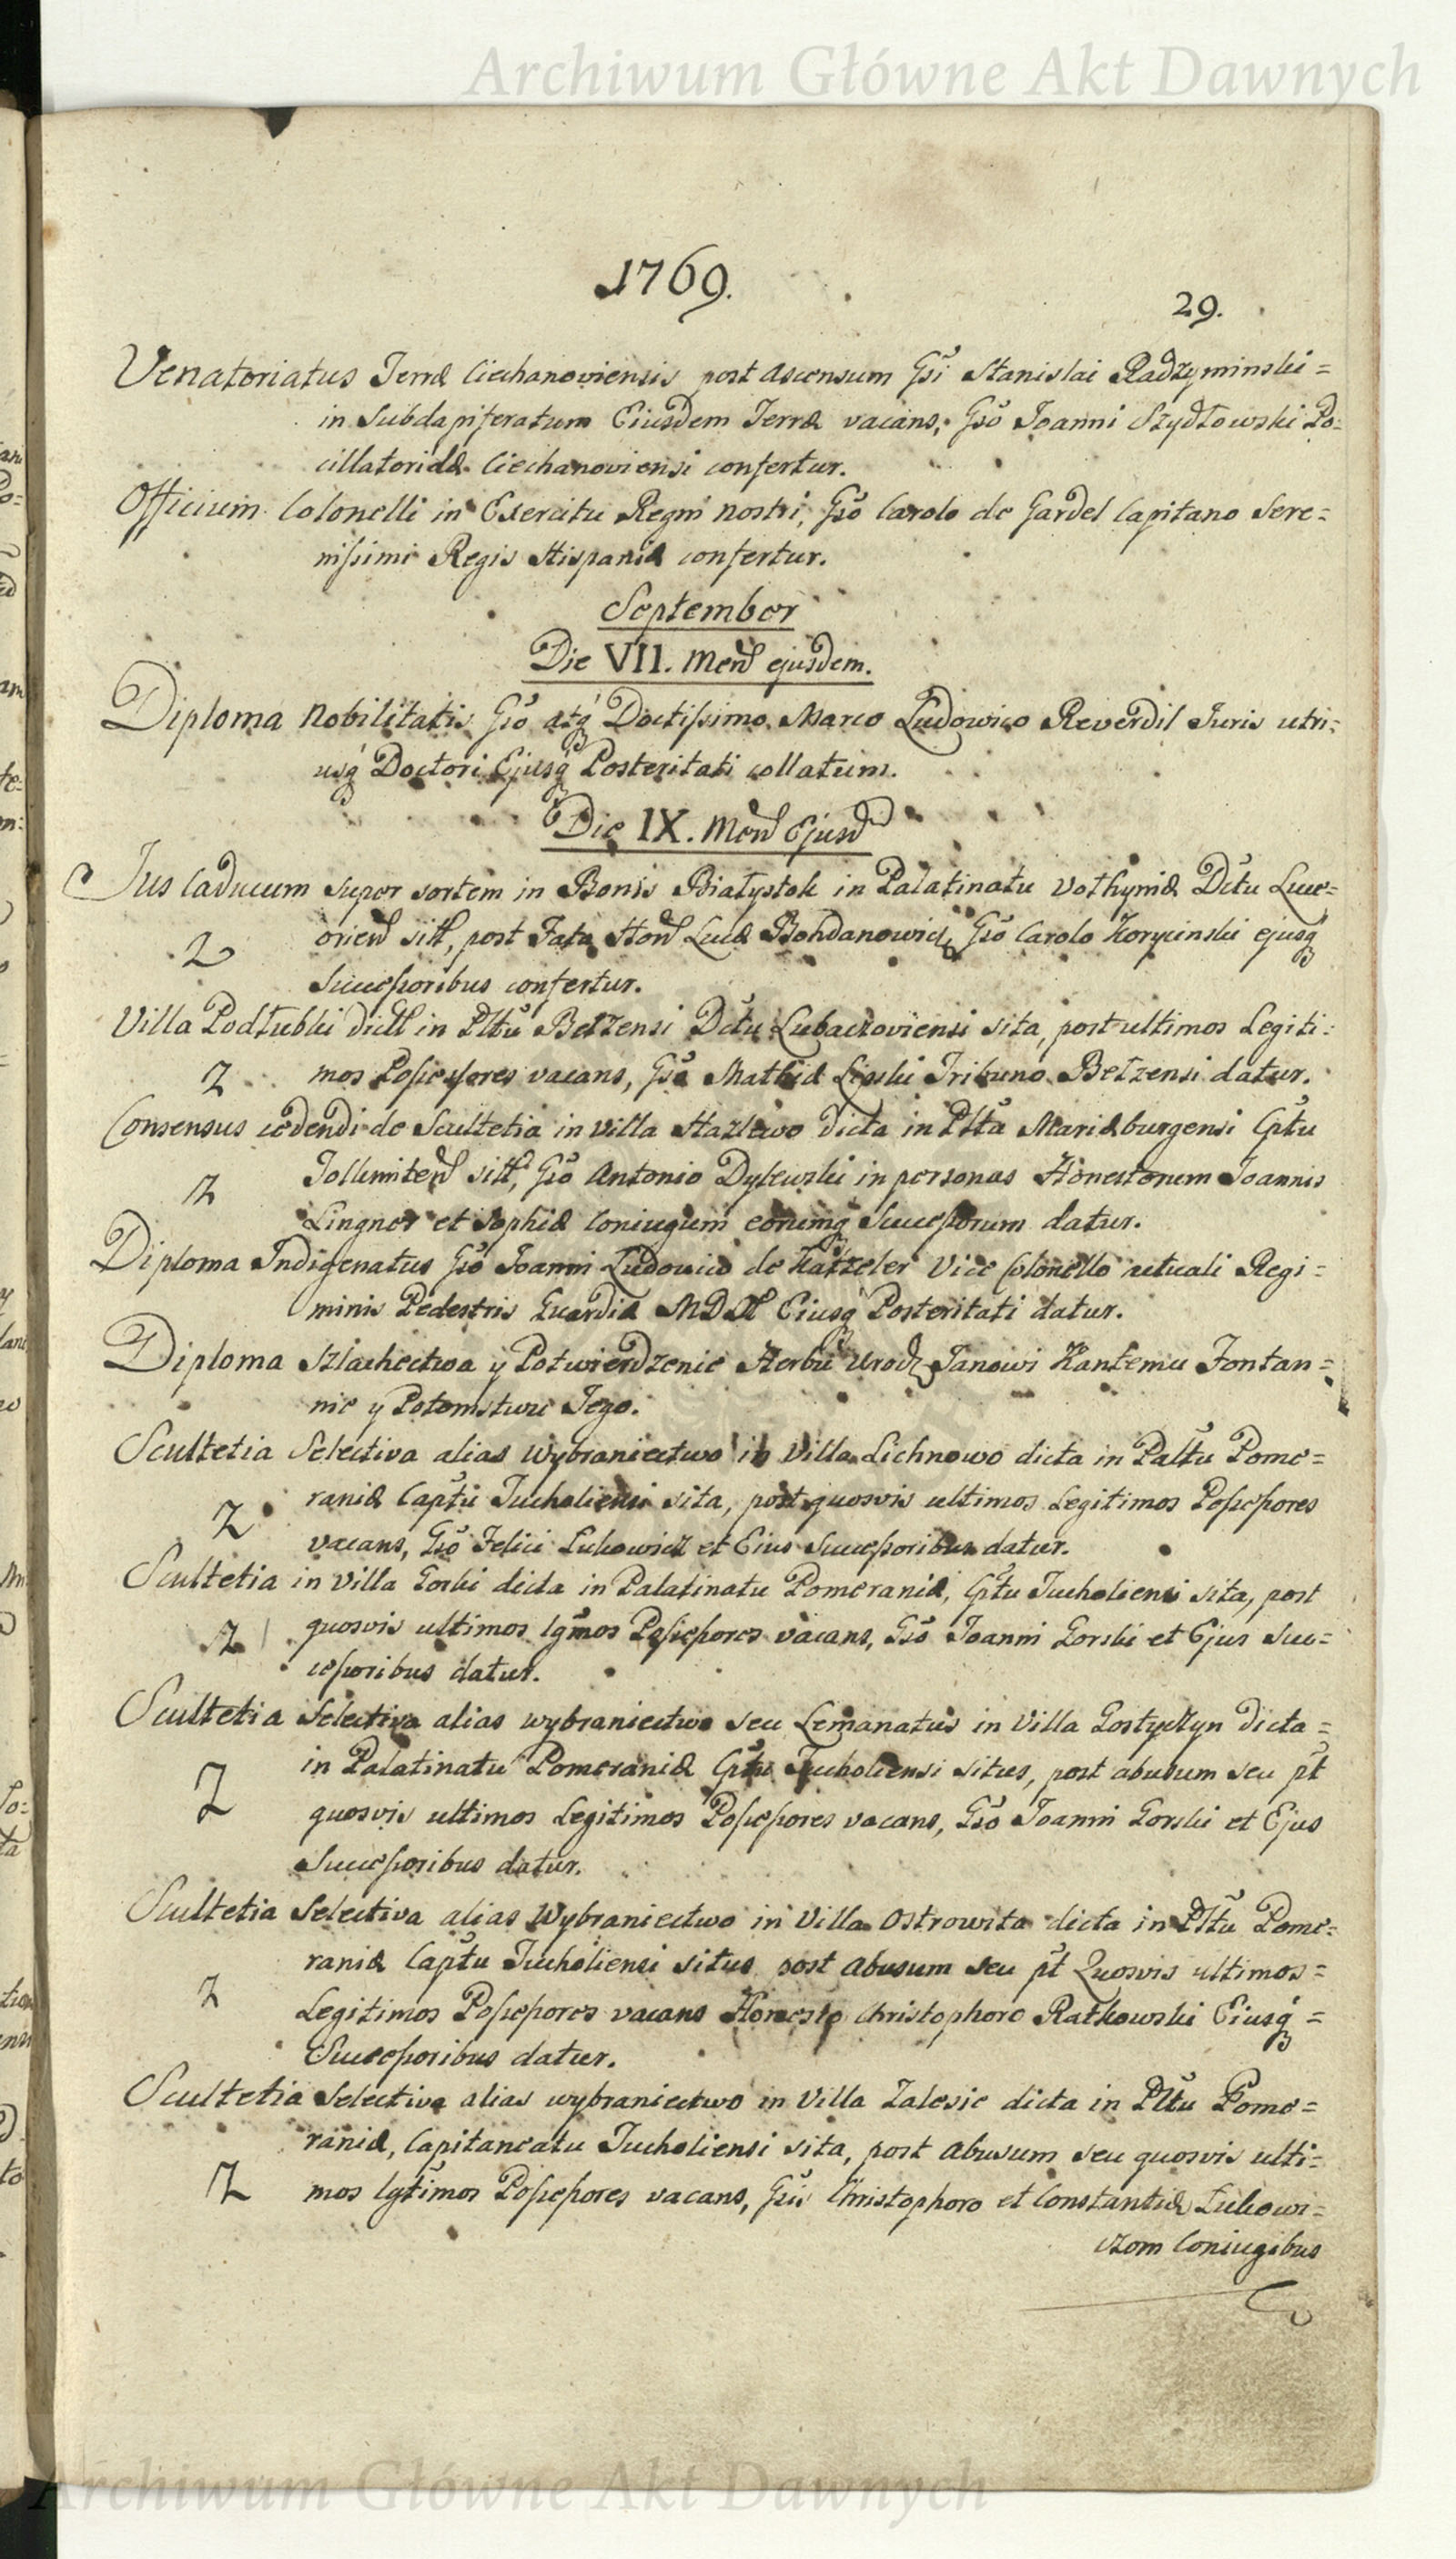 Archiwum Główne Akt Dawnych
1769.
29.
Venatoriatus Terræ Ciechanoviensis post Ascensum Gsi Stanislai Radzyminski =
in Subdapiferatum Eiusdem Terræ vacans, Gso Joanni Szydłowski Po=
cillatoridæ Ciechanoviensi confertur.
Officium Colonelli in Exercitu Regni nostri, Gso Carolo de Gardel Capitano Sere=
nissimi Regis Hispaniæ confertur.
September
Die VII. Mens ejusdem.
Diploma Nobilitatis Gso atq Doctissimo Marco Ludowico Reverdil Juris utri=
usq Doctori Ejusq Posteritati collatum.
Die IX. Mens Ejusd
Jus Caducum super sortem in Bonis Białystok in Palatinatu Volhyniæ Dctu Luce=
orien sitt, post Fata Hon Lucæ Bohdanowicz, Gso Carolo Korycinski ejusq
2
Successoribus confertur.
Villa Podłubki dict in Pltu Bełzensi Dctu Lubaczoviensi sita, post ultimos Legiti=
2 mos Possessores vacans, Gso Mathiæ Lipski Tribuno Bełzensi datur.
Consensus cedendi de Scultetia in Villa Hazlewo dicta in Pltu Mariæburgensi Cptu
Tolkmiten sitt, Gso Antonio Dylewski in personas Honestorum Joannis
2
Lingner et Sophiæ Coniugum eorumq Successorum datur.
Diploma Indigenatus Gso Joanni Ludovico de Hatzeler Vice Colonello actuali Regi=
minis Pedestris Guardiæ MDL Eiusq Posteritati datur.
Diploma Szlachectwa y Potwierdzenie Herbu Urodz Janowi Kantemu Fontan=
nie y Potomstwu Jego.
Scultetia Selectiva alias Wybraniectwo in Villa Lichnowo dicta in Paltu Pome=
raniæ Captu Tucholiensi sita, post quosvis ultimos Legitimos Possessores
2
vacans, Gso Felici Lukowicz et Eius Successoribus datur.
Scultetia in Villa Gorki dicta in Palatinatu Pomeraniæ, Cptu Tucholiensi sita, post
2 quosvis ultimos lgmos Possessores vacans, Gso Joanni Gorski et Ejus Suc=
cessoribus datur.
Scultetia Selectiva alias wybraniectwo seu Lemanatus in Villa Gostyczyn dicta =
in Palatinatu Pomeraniæ Cptu Tucholiensi situs, post abusum seu pt
2
quosvis ultimos Legitimos Possessores vacans, Gso Joanni Gorski et Ejus
Successoribus datur.
Scultetia Selectiva alias Wybraniectwo in Villa Ostrowita dicta in Pltu Pome=
raniæ Captu Tucholiensi situs post Abusum seu pt Quosvis ultimos =
2
Legitimos Possessores vacans Honesto Christophoro Ratkowski Eiusq =
Successoribus datur.
Scultetia Selectiva alias wybraniectwo in Villa Zalesie dicta in Pltu Pome=
raniæ, Capitaneatu Tucholiensi sita, post Abusum seu quosvis ulti=
2 mos lgtimos Possessores vacans, Gsis Christophoro et Constantiæ Lukowi=
czom Coniugibus
Archiwum Główne Akt Dawnych